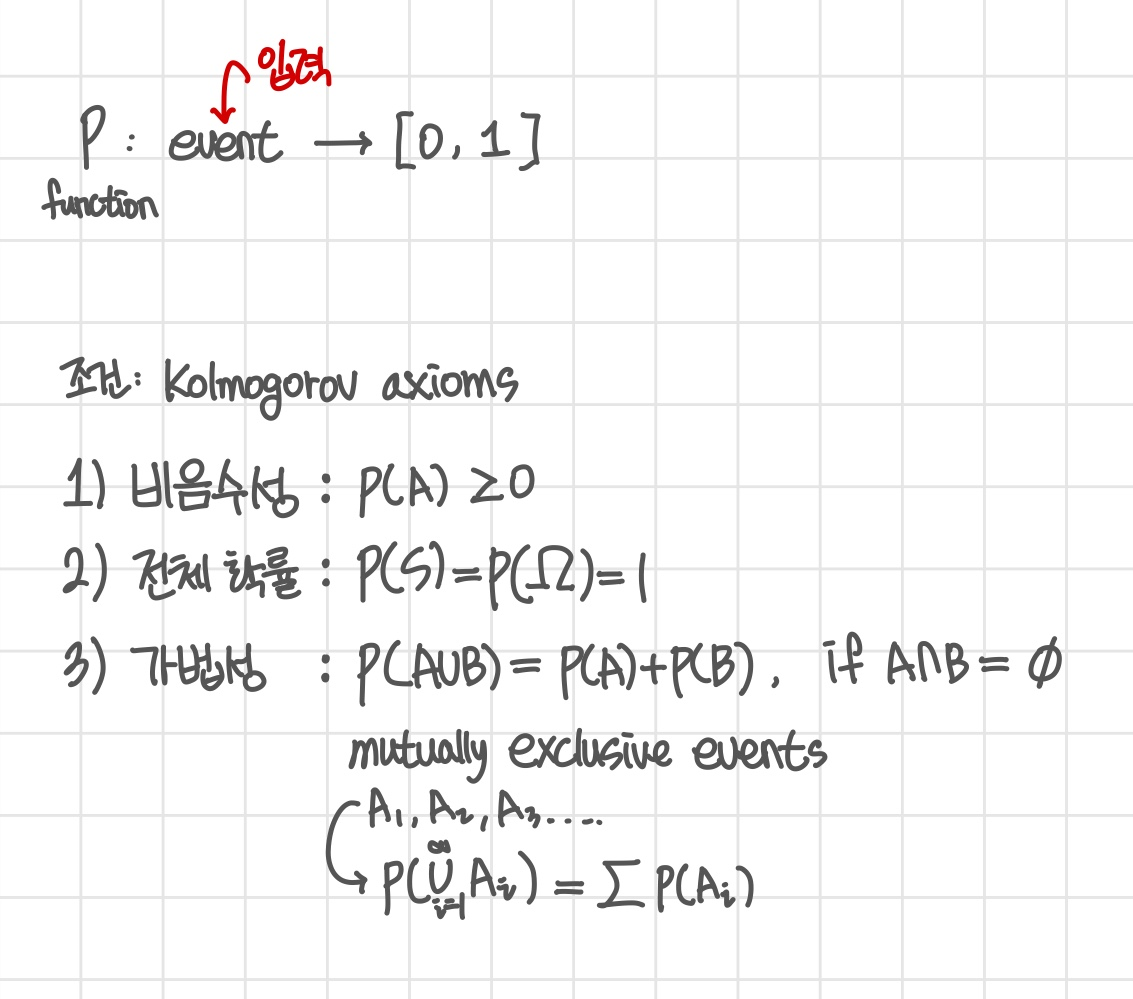 입력
P : event → [0, 1]
function
조건: Kolmogorov axioms
1) 비음수성 : P(A) ≥0
2) 전체 확률 : P(S)=P(Ω)=1
3) 가법성 : P(A∪B)= P(A)+P(B), if A∩B= ∅
mutually exclusive events
A₁, A₂, A₃....
P(⋃ᵢ₌₁^∞ Aᵢ) = ∑ P(Aᵢ)